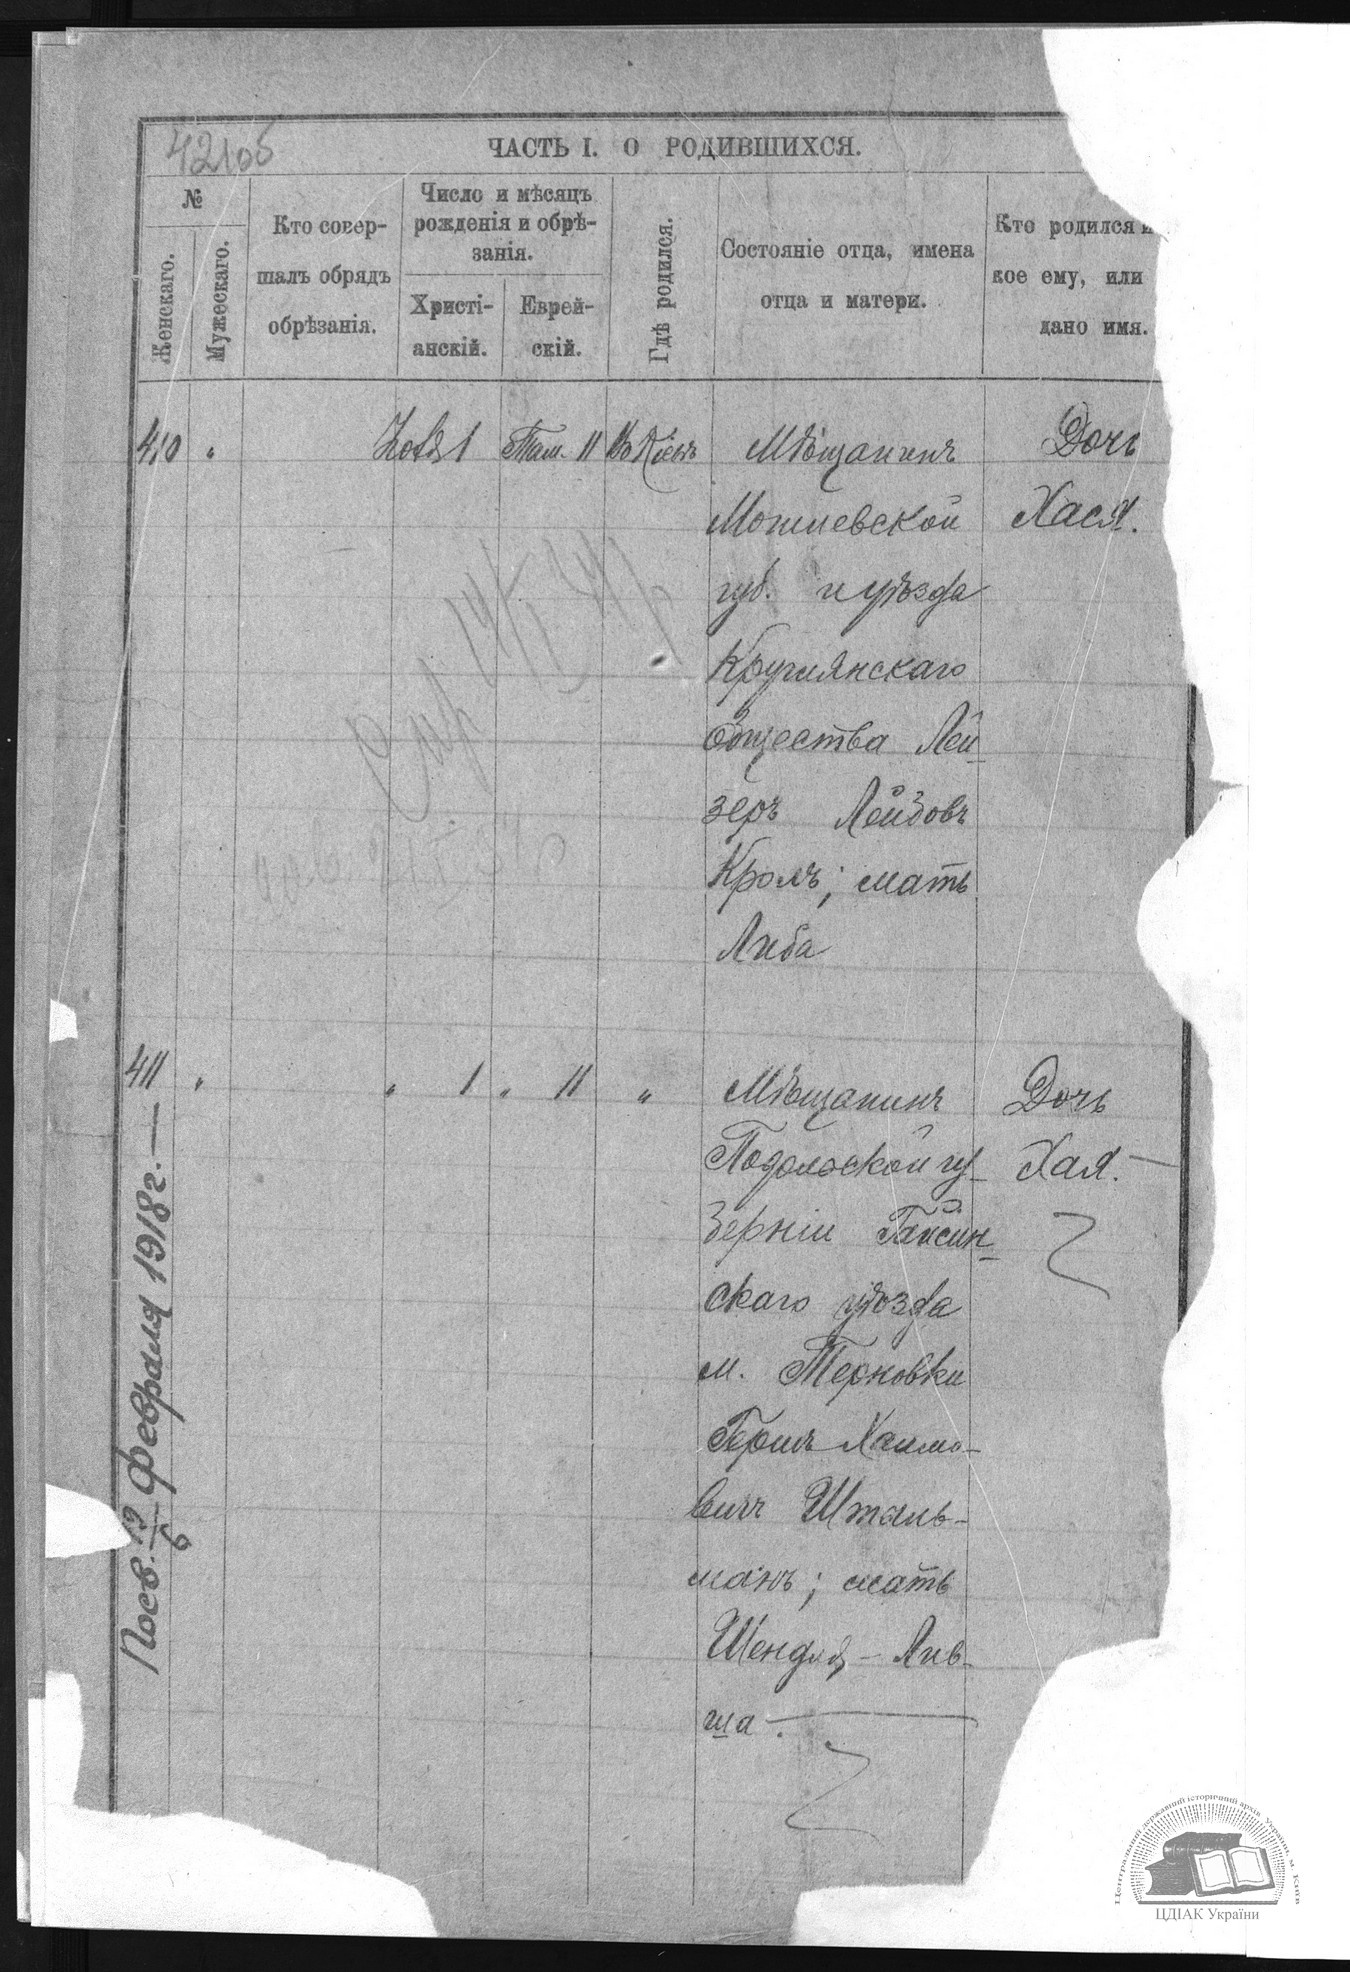 421об
ЧАСТЬ I. О РОДИВШИХСЯ.
№
Женскаго.
Мужескаго.
Кто совер-
шалъ обрядъ
обрѣзанія.
Число и мѣсяцъ
рожденія и обрѣ-
занія.
Христі-
анскій.
Еврей-
скій.
Гдѣ родился.
Состояніе отца, имена
отца и матери.
Кто родился и
кое ему, или
дано имя.
410 " Нояб 1 Там. 11 Въ Кіевѣ
Мѣщанинъ
Могилевской
губ. и уѣзда
Круглянскаго
общества Лей-
зеръ Лейбовъ
Кролъ; мать
Либа
Дочь
Хася.
411 " " 1 " 11 "
Мѣщанинъ
Подольской гу-
берніи Гайсин-
скаго уѣзда
м. Терновки
Гершъ Хаимо-
вичъ Шталь-
манъ; мать
Шендля-Лив-
ша.
Дочь
Хая.
19/6 Февраля 1918г.
Центральний державний історичний архів України, м. Київ
ЦДІАК України